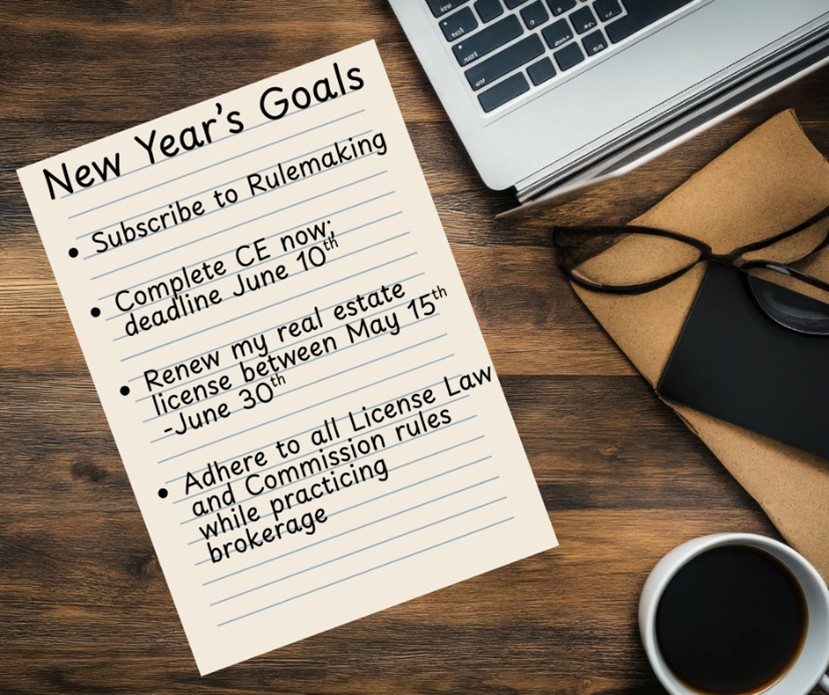 New Year's Goals
• Subscribe to Rulemaking
• Complete CE now;
deadline June 10th
• Renew my real estate
license between May 15th
-June 30th
• Adhere to all License Law
and Commission rules
while practicing
brokerage